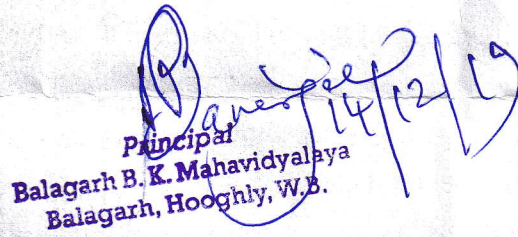 Banerjee
14/12/19
Principal
Balagarh B. K. Mahavidyalaya
Balagarh, Hooghly, W.B.